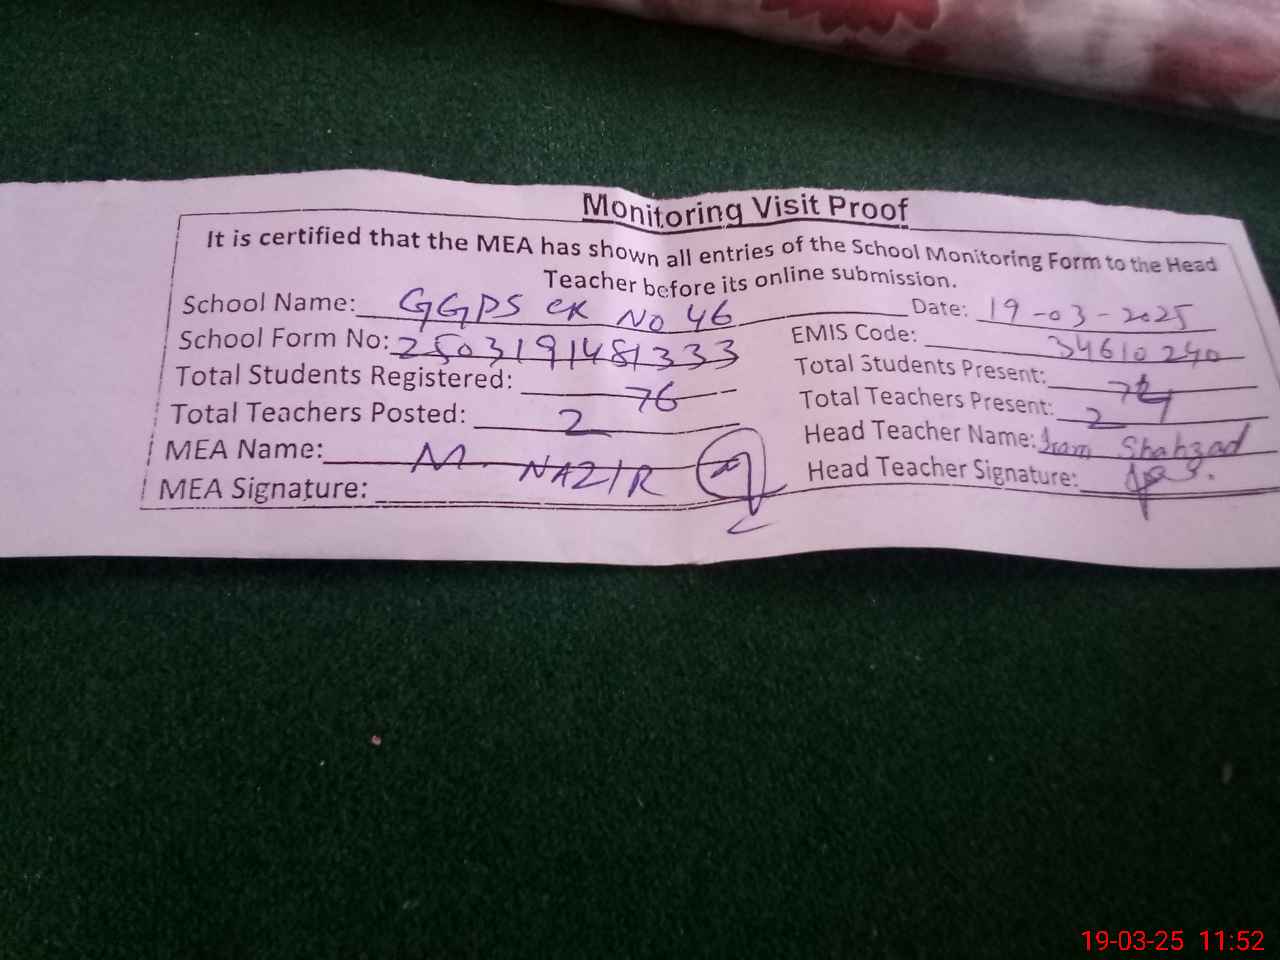 Monitoring Visit Proof
It is certified that the MEA has shown all entries of the School Monitoring Form to the Head
Teacher before its online submission.
School Name: GGPS CK NO 46 Date: 19-03-2025
School Form No: 2503191481333 EMIS Code: 34610240
Total Students Registered: 76 Total Students Present:
Total Teachers Posted: 2 Total Teachers Present: 2
MEA Name: M. NAZIR Head Teacher Name: Iram Shahzad
MEA Signature: Head Teacher Signature:
19-03-25 11:52